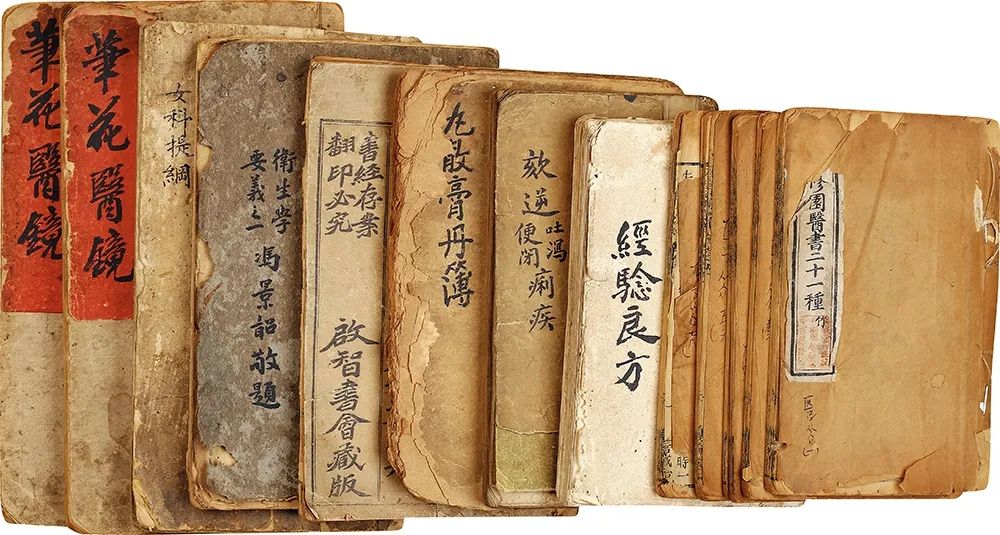 筆花醫鏡
筆花醫鏡
女科提綱
衛生學
要義之
馮景韶敬題
書經存案
翻印必究
啟智書會藏版
丸散膏丹簿
欬逆
吐瀉
便閉
痢疾
經驗良方
時一
修園醫書二十一種
竹